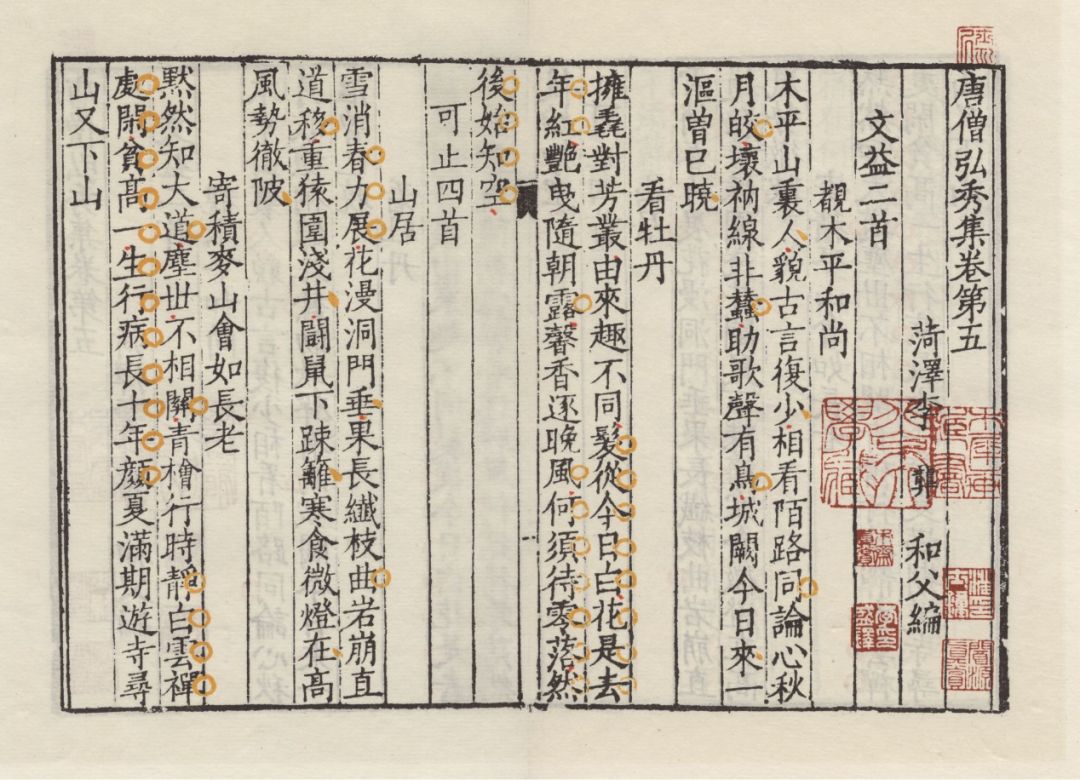 唐僧弘秀集卷第五
菏澤李 龏 和父編
文益二首
覩木平和尚
木平山裏人貌古言復少相看陌路同論心秋
月皎壞衲線非蠶助歌聲有鳥城闕今日來一
漚曾已曉
看牡丹
擁毳對芳叢由來趣不同髮從今日白花是去
年紅艷曳隨朝露馨香逐晚風何須待零落然
後始知空
可止四首
山居
雪消春力展花漫洞門垂果長纖枝曲岩崩直
道移重猿圍淺井鬬鼠下疎籬寒食微燈在高
風勢徹陂
寄積麥山會如長老
默然知大道塵世不相關青檜行時靜白雲禪
處閑貧高一生行病長十年顏夏滿期遊寺尋
山又下山